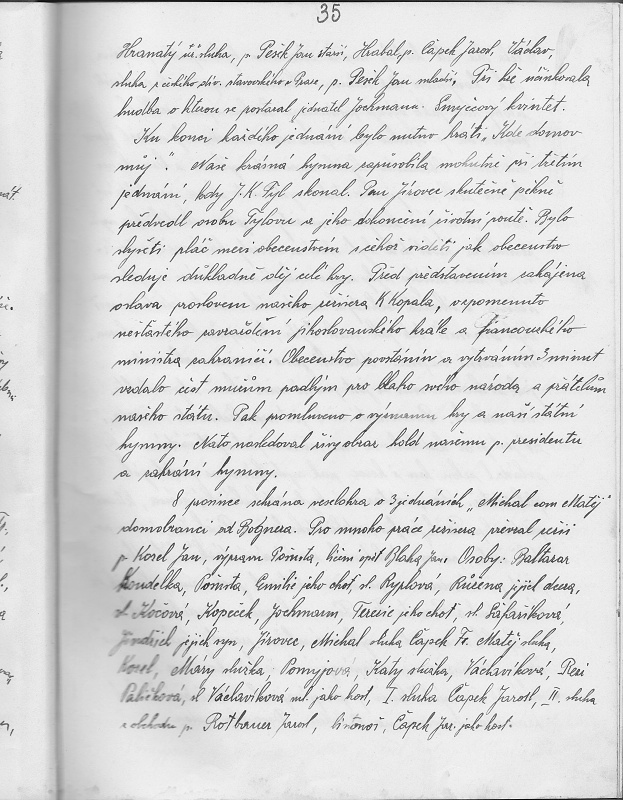 35
Hranatý úř. sluha, p. Pešek Jan starší, Hrabal, p. Čapek Jarosl, Václav,
sluha z českého div. stavovského v Praze, p. Pešek Jan mladší, Při hře účinkovala
hudba o kterou se postaral jednatel Jochmann. Smyčcový kvintet.
Ku konci každého jednání bylo nutno hráti „Kde domov
můj". Naše krásná hymna zapůsobila mohutně při třetím
jednání, kdy J. K. Tyl skonal. Pan Jírovec skutečně pěkně
předvedl osobu Tylovu a jeho dokončení životní poutě. Bylo
slyšeti pláč mezi obecenstvem z čehož viděti jak obecenstvo
sleduje důkladně děj celé hry. Před představením zahájena
oslava proslovem našeho režiséra K Kopala, vzpomenuto
nešťastého zavraždění jihoslovanského krále a francouzského
ministra zahraničí. Obecenstvo povstáním a vytrváním 3 minut
vzdalo čest mužům padlým pro blaho svého národa a přátelům
našeho státu. Pak promluveno o významu hry a naší státní
hymny. Nato následoval živý obraz hold našemu p. presidentu
a zahrání hymny.
8 prosince sehrána veselohra o 3 jednáních „Michal com Matěj"
domobranci od Bognera. Pro mnoho práce režiséra převzal režii
p Kosel Jan, výprava Pošusta, líčení opět Blaha Jan. Osoby: Baltazar
Koudelka, Pošusta, Emilie jeho choť, sl. Ryplová, Růžena jejich dcera,
sl. Kočová, Kopeček, Jochmann, Terezie jeho choť, sl. Šafaříková,
Jindřich jejich syn, Jírovec, Michal sluha Čapek Fr. Matěj sluha,
Kosel, Máry služka, Pomyjova, Katy služka, Václavíková, Resi
Paličková, sl Václavíková ml. jako host, I. sluha Čapek Jarosl, II. sluha
z obchodu p. Rotbauer Jarosl, listonoš, Čapek Jar. jako host.